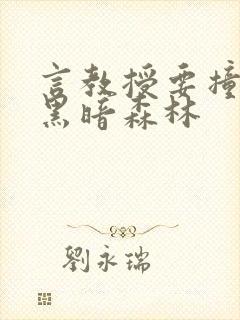 言教授要撞
黑暗森林
劉永瑞